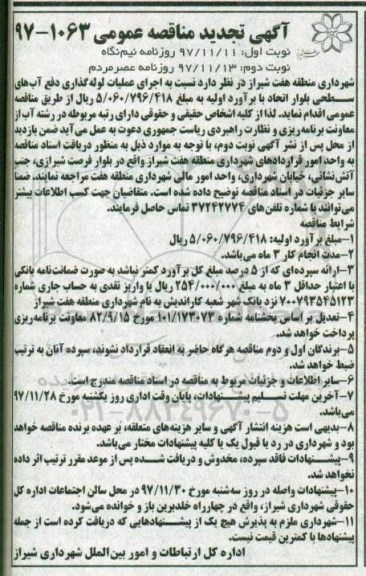 آگهی تجدید مناقصه عمومی ۱۰۶۳-۹۷
نوبت اول: ۹۷/۱۱/۱۱ روزنامه نیم‌نگاه
نوبت دوم: ۹۷/۱۱/۱۳ روزنامه عصرمردم
شهرداری منطقه هفت شیراز در نظر دارد نسبت به اجرای عملیات لوله‌گذاری دفع آب‌های
سطحی بلوار اتحاد با برآورد اولیه به مبلغ ۵/۰۶۰/۷۹۶/۴۱۸ ریال از طریق مناقصه
عمومی اقدام نماید. لذا از کلیه اشخاص حقیقی و حقوقی دارای رتبه مربوطه در رشته آب از
معاونت برنامه‌ریزی و نظارت راهبردی ریاست جمهوری دعوت به عمل می‌آید ضمن بازدید
از محل پس از نشر آگهی نوبت دوم، با توجه به موارد ذیل به منظور دریافت اسناد مناقصه
به واحد امور قراردادهای شهرداری منطقه هفت شیراز واقع در بلوار فرصت شیرازی، جنب
آتش‌نشانی، خیابان شهرداری، واحد امور مالی شهرداری منطقه هفت مراجعه نمایند. ضمنا
سایر جزئیات در اسناد مناقصه توضیح داده شده است. متقاضیان جهت کسب اطلاعات بیشتر
می‌توانند با شماره تلفن‌های ۳۷۲۴۲۷۷۴ تماس حاصل فرمایند.
شرایط مناقصه
۱-مبلغ برآورد اولیه: ۵/۰۶۰/۷۹۶/۴۱۸ ریال
۲-مدت انجام کار ۳ ماه می‌باشد.
۳-ارائه سپرده‌ای که از ۵ درصد مبلغ کل برآورد کمتر نباشد به صورت ضمانت‌نامه بانکی
با اعتبار حداقل ۳ ماه به مبلغ ۲۵۴/۰۰۰/۰۰۰ ریال یا واریز نقدی به حساب جاری شماره
۷۰۰۷۹۳۵۴۵۱۲۳ نزد بانک شهر شعبه کاراندیش به نام شهرداری منطقه هفت شیراز
۴-تعدیل بر اساس بخشنامه شماره ۱۰۱/۱۷۳۰۷۳ مورخ ۸۲/۹/۱۵ معاونت برنامه‌ریزی
پرداخت خواهد شد.
۵-برندگان اول و دوم مناقصه هرگاه حاضر به انعقاد قرارداد نشوند، سپرده آنان به ترتیب
ضبط خواهد شد.
۶-سایر اطلاعات و جزئیات مربوط به مناقصه در اسناد مناقصه مندرج است.
۷-آخرین مهلت تسلیم پیشنهادات، پایان وقت اداری روز یکشنبه مورخ ۹۷/۱۱/۲۸
می‌باشد.
۸-بدیهی است هزینه انتشار آگهی و سایر هزینه‌های متعلقه، بر عهده برنده مناقصه خواهد
بود و شهرداری در رد یا قبول یک یا کلیه پیشنهادات مختار می‌باشد.
۹-پیشنهادات فاقد سپرده، مخدوش و دریافت شده پس از موعد مقرر ترتیب اثر داده
نخواهد شد.
۱۰-پیشنهادات واصله در روز سه‌شنبه مورخ ۹۷/۱۱/۳۰ در محل سالن اجتماعات اداره کل
حقوقی شهرداری شیراز، واقع در چهارراه خلدبرین باز و خوانده می‌شود.
۱۱-شهرداری ملزم به پذیرش هیچ یک از پیشنهادهایی که دریافت کرده است از جمله
پیشنهادها با کمترین قیمت نیست.
اداره کل ارتباطات و امور بین‌الملل شهرداری شیراز
۰۲۱-۸۸۳۴۹۶۷۰-۵